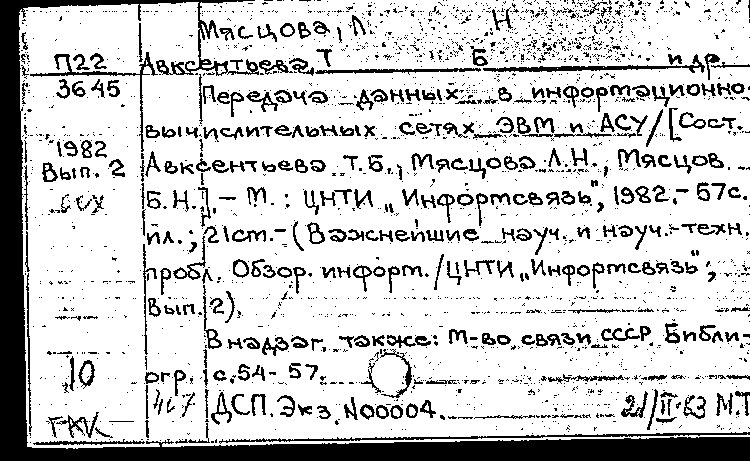 Мясцова, Л. Н
П22 Авксентьева, Т Б и др.
3645 Передача данных в информационно-
вычислительных сетях ЭВМ и АСУ/[Сост.
1982 Авксентьева Т.Б., Мясцова Л.Н., Мясцов
Вып. 2 Б.Н.]. – М.: ЦНТИ „Информсвязь", 1982. – 57с.
ил.; 21см. – (Важнейшие науч. и науч.-техн.
пробл. Обзор. информ./ЦНТИ „Информсвязь";
Вып. 2).
В надзаг. также: М-во связи СССР. Библи-
10 огр. с. 54-57.
467 ДСП. Экз. N00004. 21/II-83 М.Т